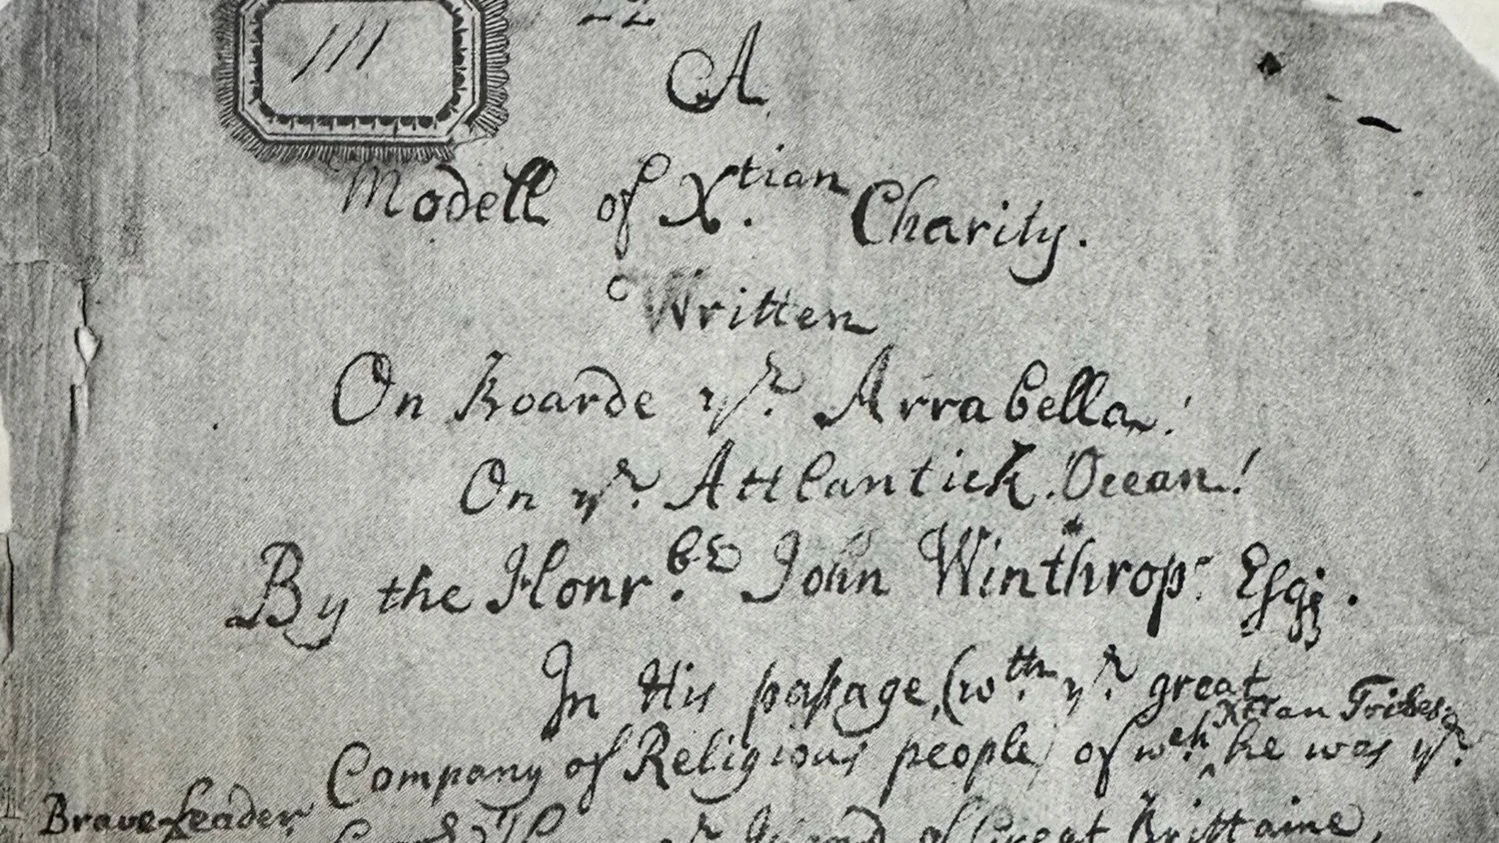 22
A
Modell of X.tian Charity.
Written
On Boarde ye. Arrabella!
On ye. Attlantick. Ocean!
By the Honr.ble John Winthrop. Esqr.
In His passage, (wth. ye. great
Xtian Tribes
Company of Religious people, of wch. he was ye.
Brave Leader
of Great Brittaine,